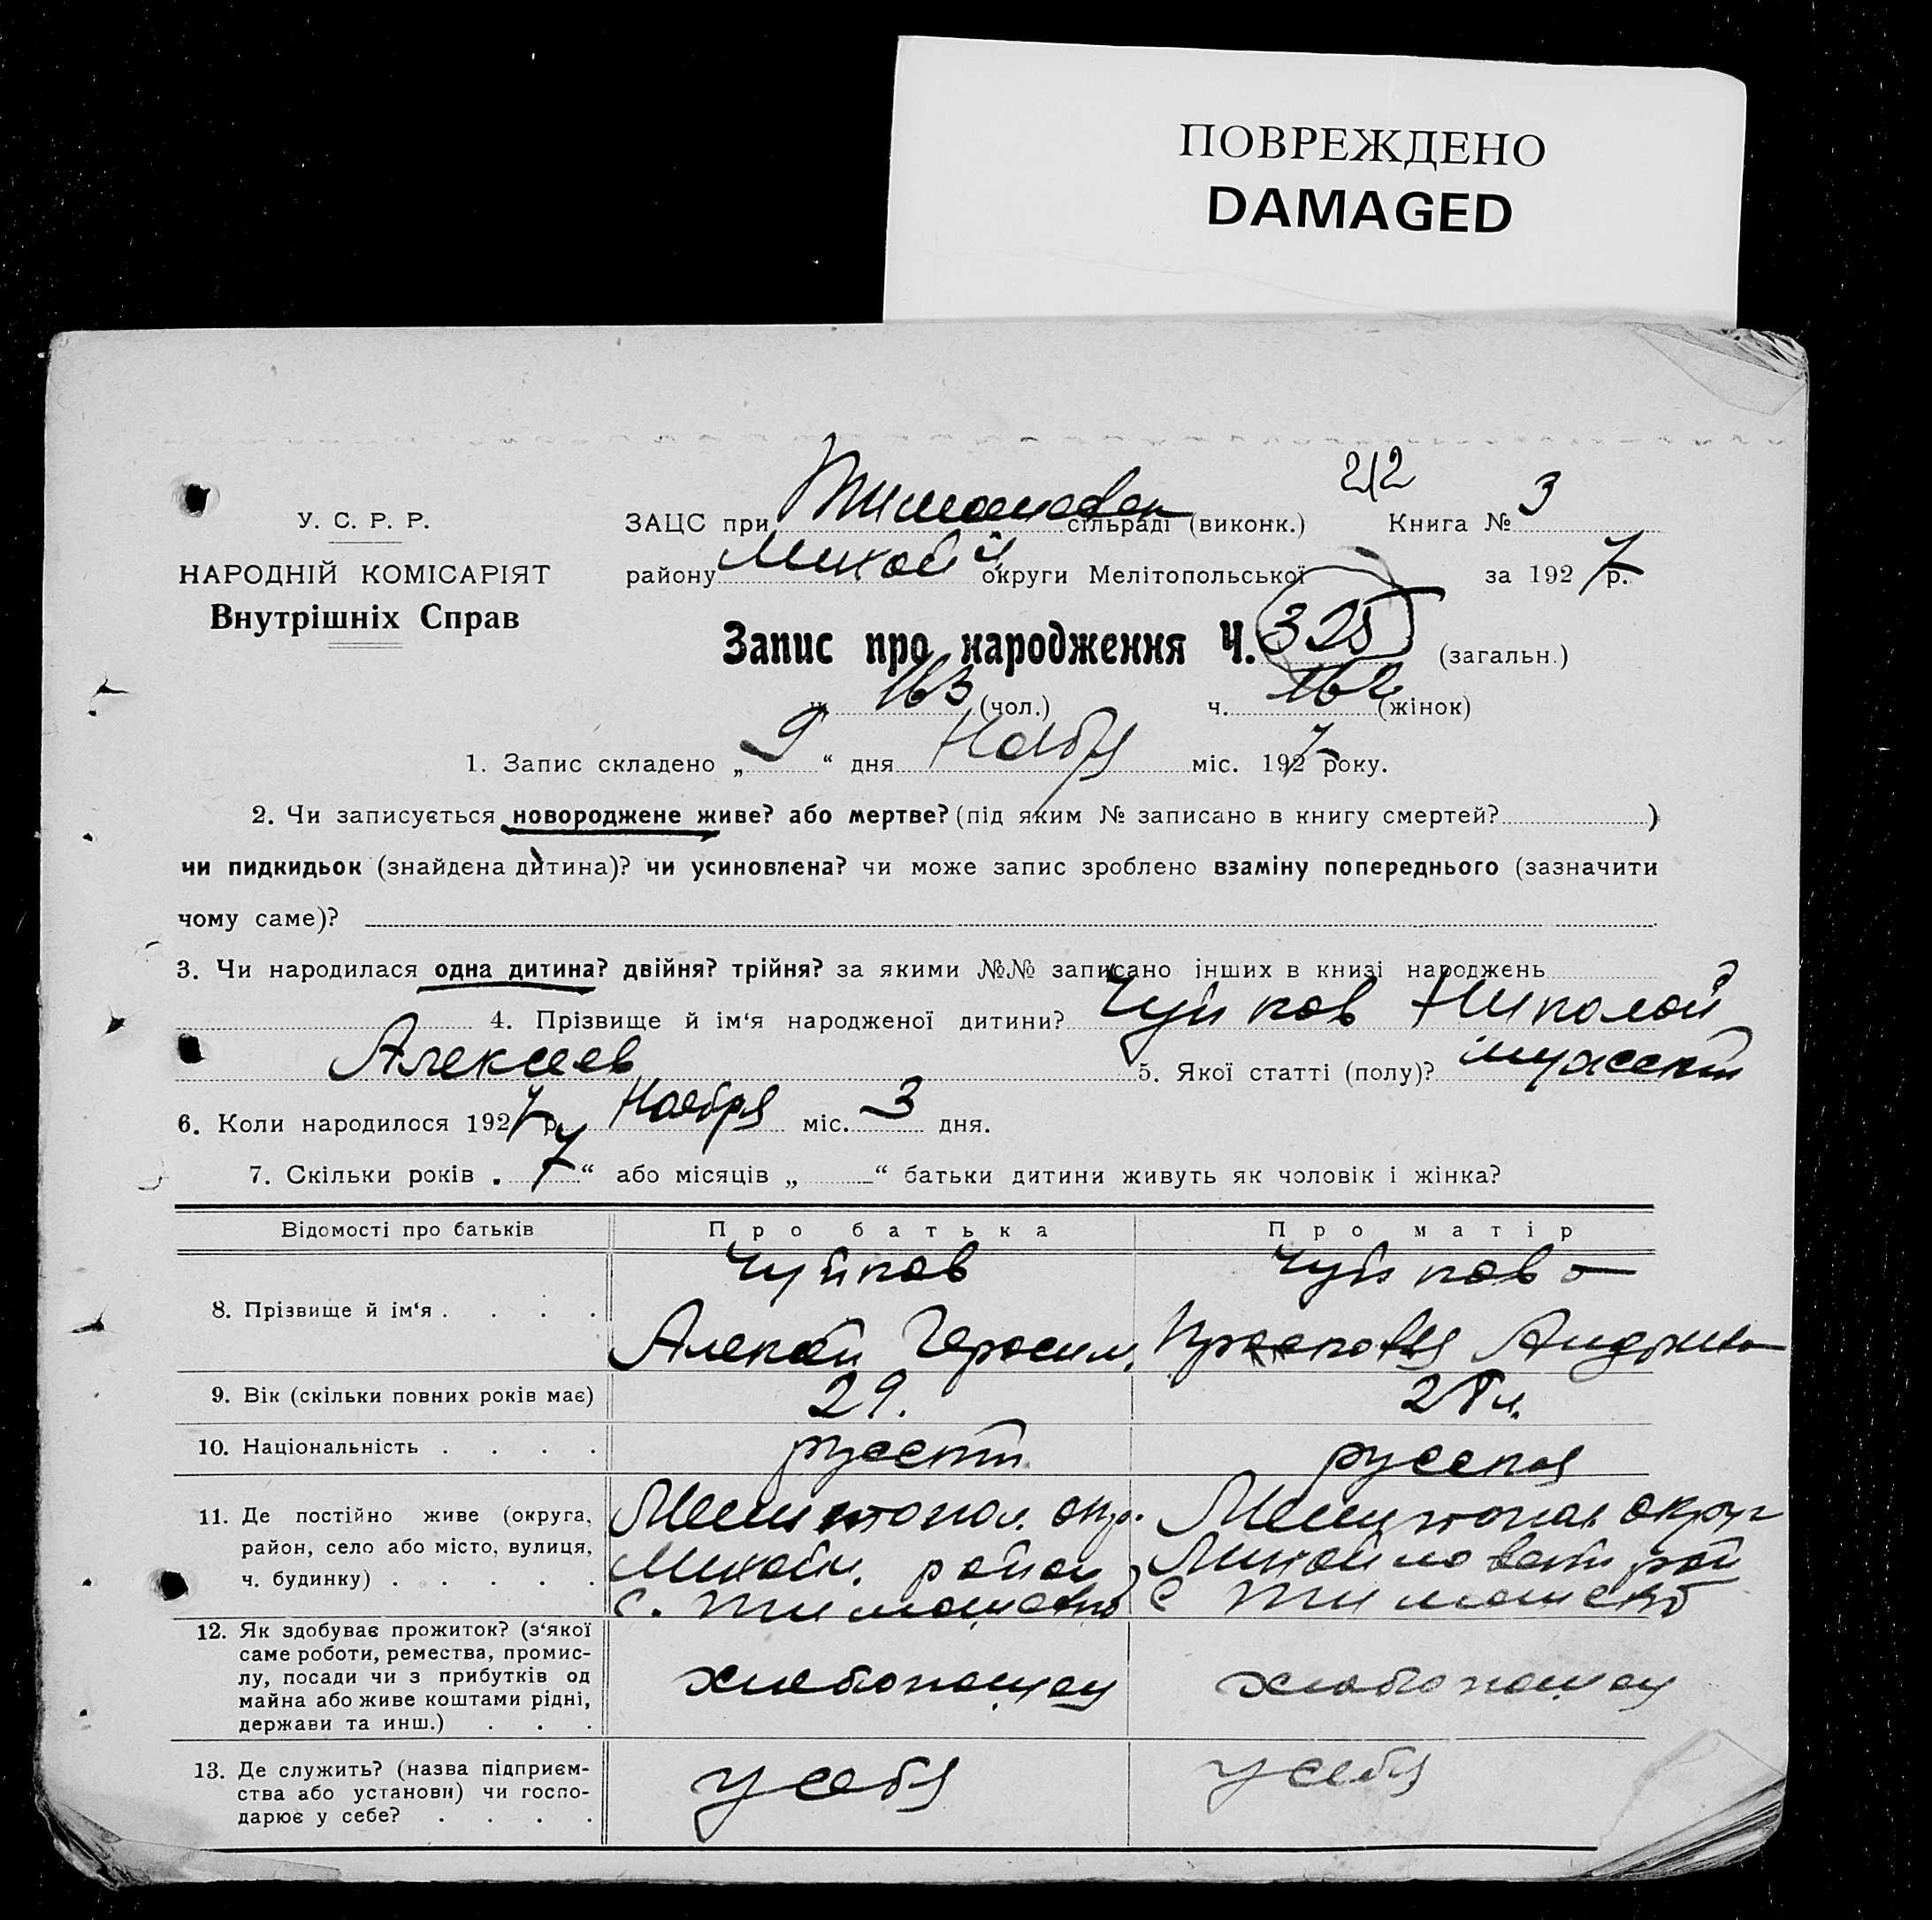 ПОВРЕЖДЕНО
DAMAGED
212
У. С. Р. Р.
НАРОДНІЙ КОМІСАРІЯТ
Внутрішніх Справ
ЗАЦС при Тимошовск сільраді (виконк.) Книга № 3
району Михай округи Мелітопольської за 1927 р.
Запис про народження Ч. 325 (загальн.)
ч. 163 (чол.) ч. 162 (жінок)
1. Запис складено „ 9 “ дня Ноябр міс. 1927 року.
2. Чи записується новороджене живе? або мертве? (під яким № записано в книгу смертей? )
чи пидкидьок (знайдена дитина)? чи усиновлена? чи може запис зроблено взаміну попереднього (зазначити
чому саме)?
3. Чи народилася одна дитина? двійня? трійня? за якими №№ записано інших в книзі народжень
4. Прізвище й ім‘я народженої дитини? Чуйков Николай
Алексеев 5. Якої статті (полу)? мужект
6. Коли народилося 1927 р. Ноября міс. 3 дня.
7. Скільки років „ 7 “ або місяців „ “ батьки дитини живуть як чоловік і жінка?
Відомості про батьків Про батька Про матір
8. Прізвище й ім‘я . . . . Чуйков Чуйкова
Алексей Геросим. Андреева
9. Вік (скільки повних років має) 29. 28 л.
10. Національність . . . . русски русская
11. Де постійно живе (округа, Мелитопол. окр. Мелитопол округ
район, село або місто, вулиця, Михайл. район Михайловск рай
ч. будинку) . . . . . с. Тимошовка с Тимошовко
12. Як здобуває прожиток? (з‘якої
саме роботи, ремества, промис-
лу, посади чи з прибутків од хлебопашец хлебопашец
майна або живе коштами рідні,
держави та инш.) . . .
13. Де служить? (назва підприєм- у себя у себя
ства або установи) чи госпо-
дарює у себе? . . . .